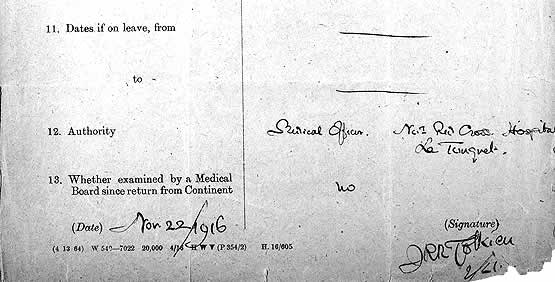 11. Dates if on leave, from
to -
12. Authority Medical Officer. No. 1 Red Cross Hospital
La Touquet.
13. Whether examined by a Medical
Board since return from Continent no
(Date) Nov 22/1916 (Signature)
(4 13 64) W 540—7022 20,000 4/16 H W V (P 354/2) H. 16/605
JRRTolkien
2/Lt.